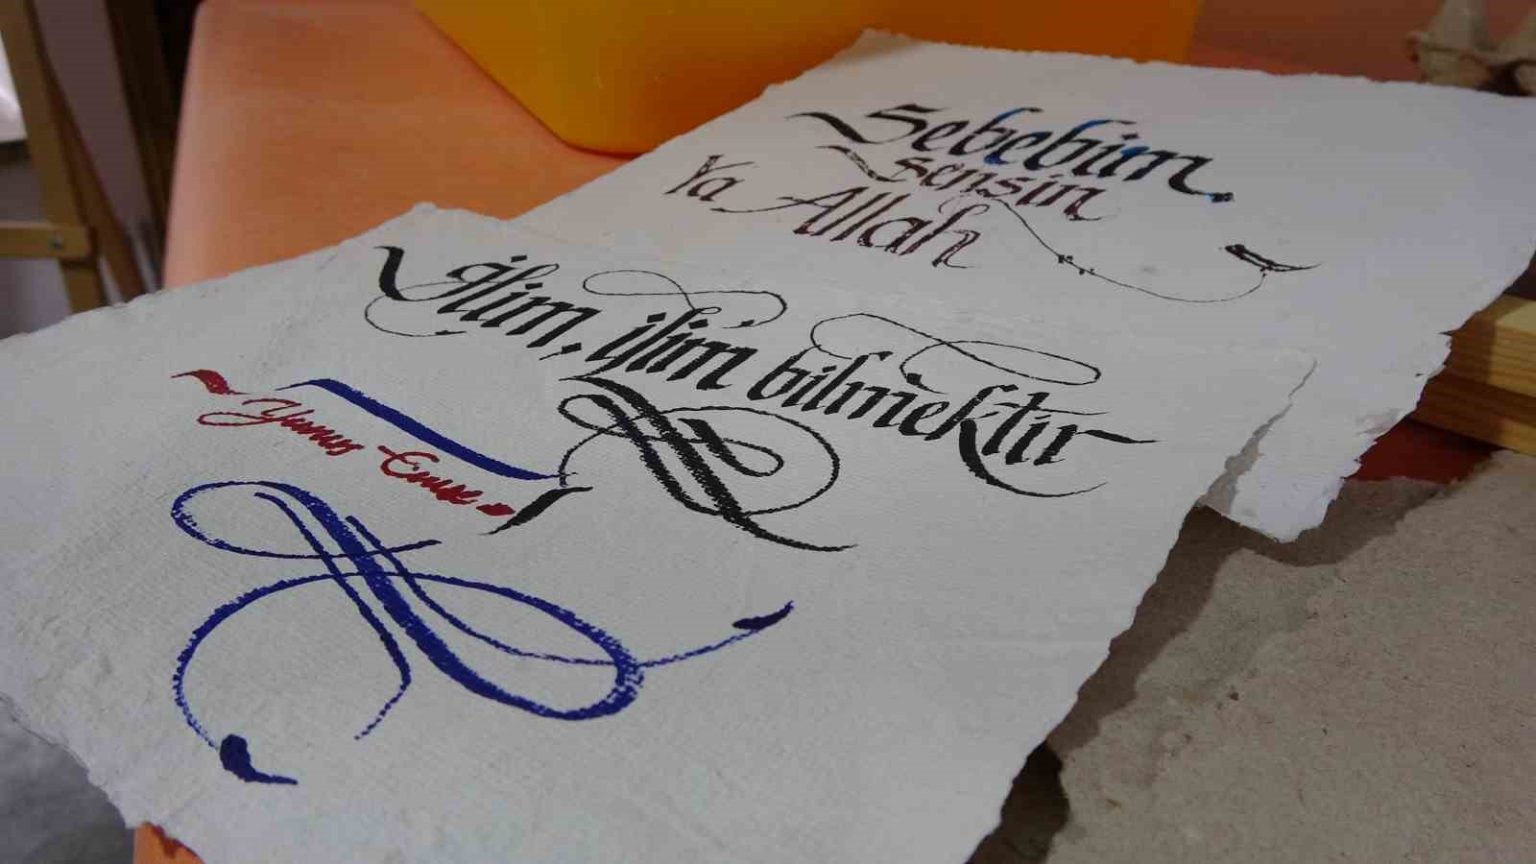 Sebebim
sensin
Ya Allah
İlim, ilim bilmektir
Yunus Emre